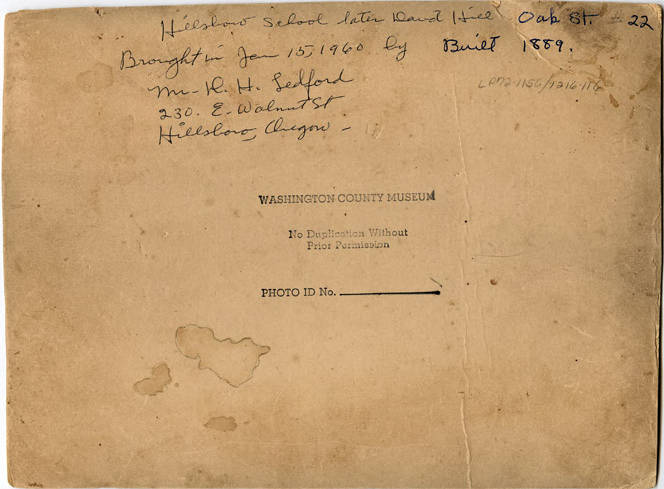 Hillsboro School later David Hill Oak St. # 22
Brought in Jan 15, 1960 by Built 1889.
Mr. H. H. Ledford
230. E. Walnut St
Hillsboro, Oregon -
WASHINGTON COUNTY MUSEUM
No Duplication Without
Prior Permission
PHOTO ID No.